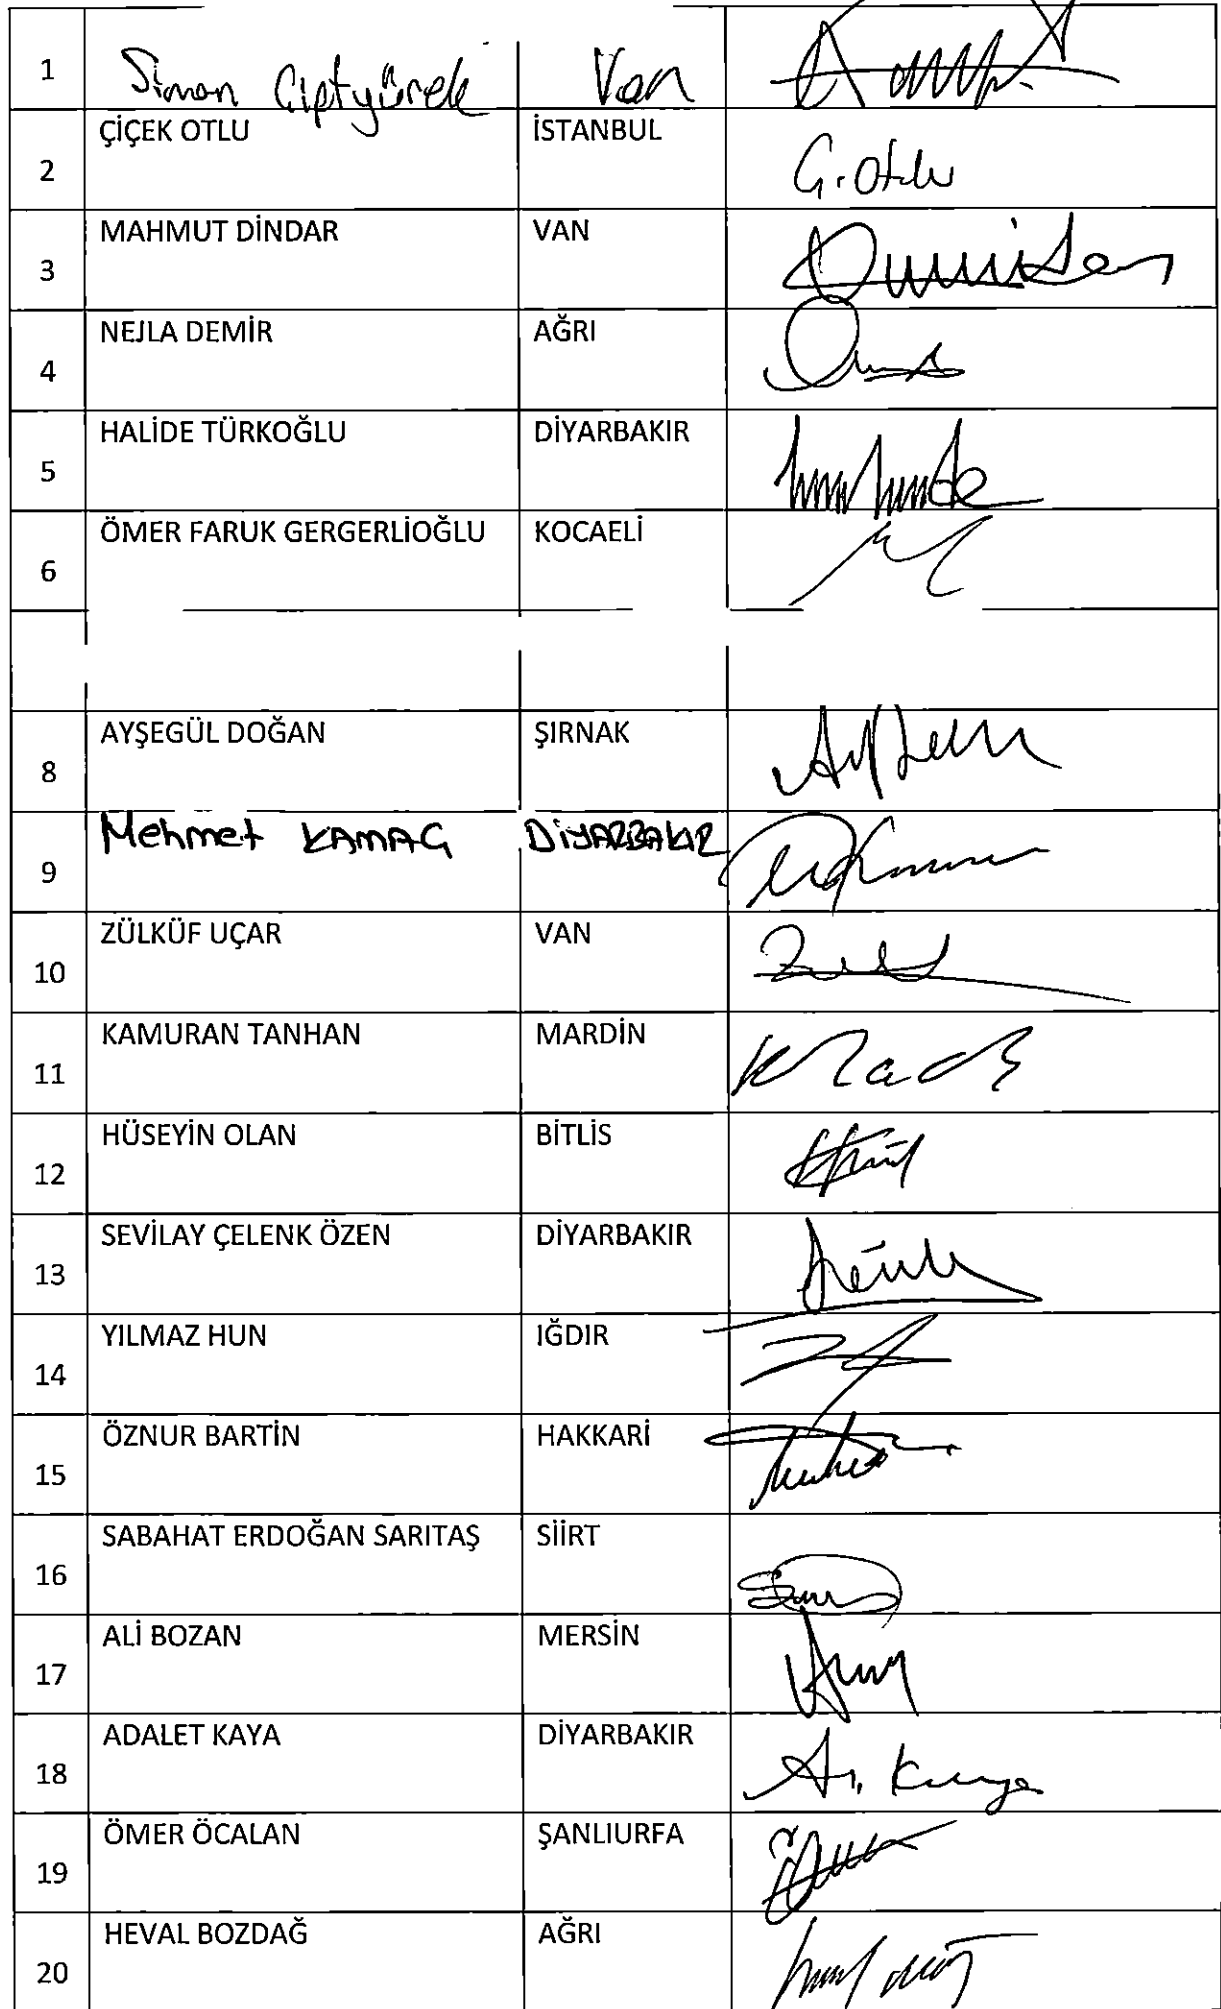 1 Sinan Çiftyürek Van
2 ÇİÇEK OTLU İSTANBUL Ç. Otlu
3 MAHMUT DİNDAR VAN
4 NEJLA DEMİR AĞRI
5 HALİDE TÜRKOĞLU DİYARBAKIR
6 ÖMER FARUK GERGERLİOĞLU KOCAELİ
8 AYŞEGÜL DOĞAN ŞIRNAK
9 Mehmet KAMAÇ DİYARBAKIR
10 ZÜLKÜF UÇAR VAN
11 KAMURAN TANHAN MARDİN
12 HÜSEYİN OLAN BİTLİS
13 SEVİLAY ÇELENK ÖZEN DİYARBAKIR
14 YILMAZ HUN IĞDIR
15 ÖZNUR BARTİN HAKKARİ
16 SABAHAT ERDOĞAN SARITAŞ SİİRT
17 ALİ BOZAN MERSİN
18 ADALET KAYA DİYARBAKIR A. Kaya
19 ÖMER ÖCALAN ŞANLIURFA
20 HEVAL BOZDAĞ AĞRI